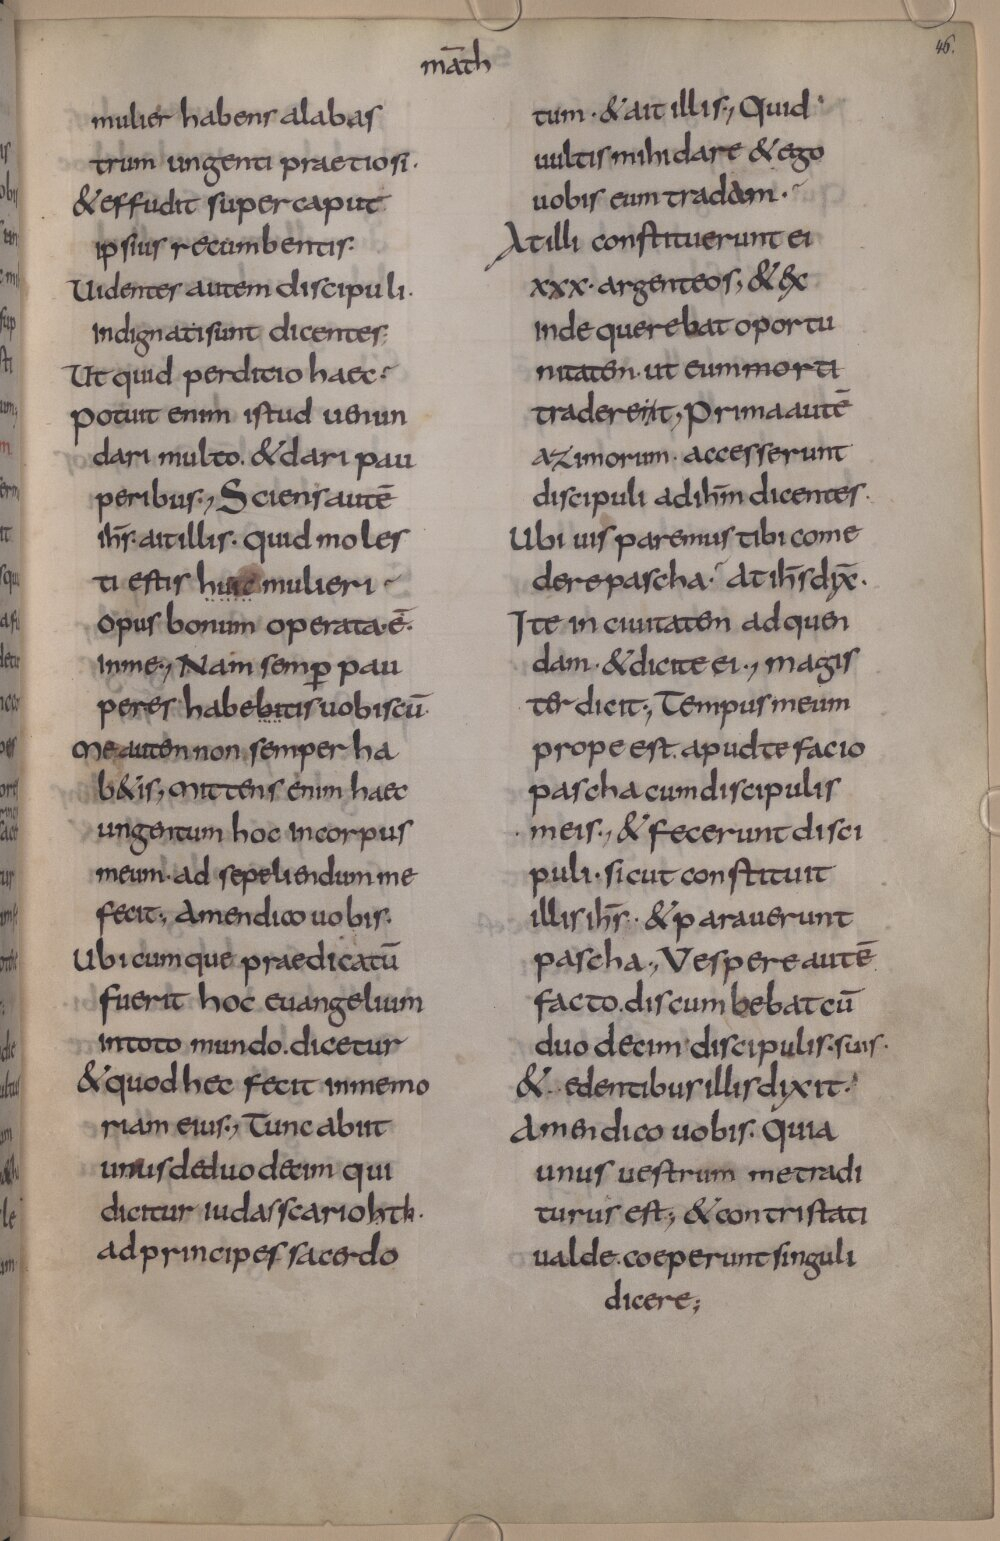 māth
46.
mulier habens alabas
trum ungenti praetiosi·
&effudit super caput
ipsius recumbentis·
Uidentes autem discipuli·
indignatisunt dicentes
Ut quid perditio haec·
potuit enim istud uenun
dari multo. &dari pau
peribus·, Sciens autē
ihs̄· ait illis· quid moles
ti estis huic mulieri
opus bonum operata·ē·
inme·, Nam semp̄ pau
peres habebitis uobiscū·
me autem non semper ha
b&is, mittens enim haec
ungentum hoc incorpus
meum· ad sepeliendum me
fecit·, amendico uobis·
Ubi cumque praedicatū
fuerit hoc euangelium
intoto mundo. dicetur
&quod hec fecit inmemo
riam eius·, Tunc abiit
unus deduo decim qui
dicitur iudas scariohth·
ad principes sacerdo
tum· &ait illis·, Quid
uultis mihi dare &ego
uobis eum tradam·
At illi constituerunt ei
xxx· argenteos, &ex
inde querebat oportu
nitatem· ut eum morti
traderent·, Prima autē
azimorum· accesserunt
discipuli ad ihm̄ dicentes·
Ubi uis paremus tibi come
dere pascha· At ihs̄ dix̄·
Ite in ciuitatem ad quen
dam· &dicite ei·, magis
ter dicit·, Tempus meum
prope est. apud te facio
pascha cum discipulis
meis·, &fecerunt disci
puli· sicut constituit
illis ihs̄· &parauerunt
pascha·, Vespere autē
facto. discumbebat cū
duo decim discipulis· suis·
& edentibus illis dixit·
Amen dico uobis· Quia
unus uestrum me tradi
turus est·, &contristati
ualde. coeperunt singuli
dicere;